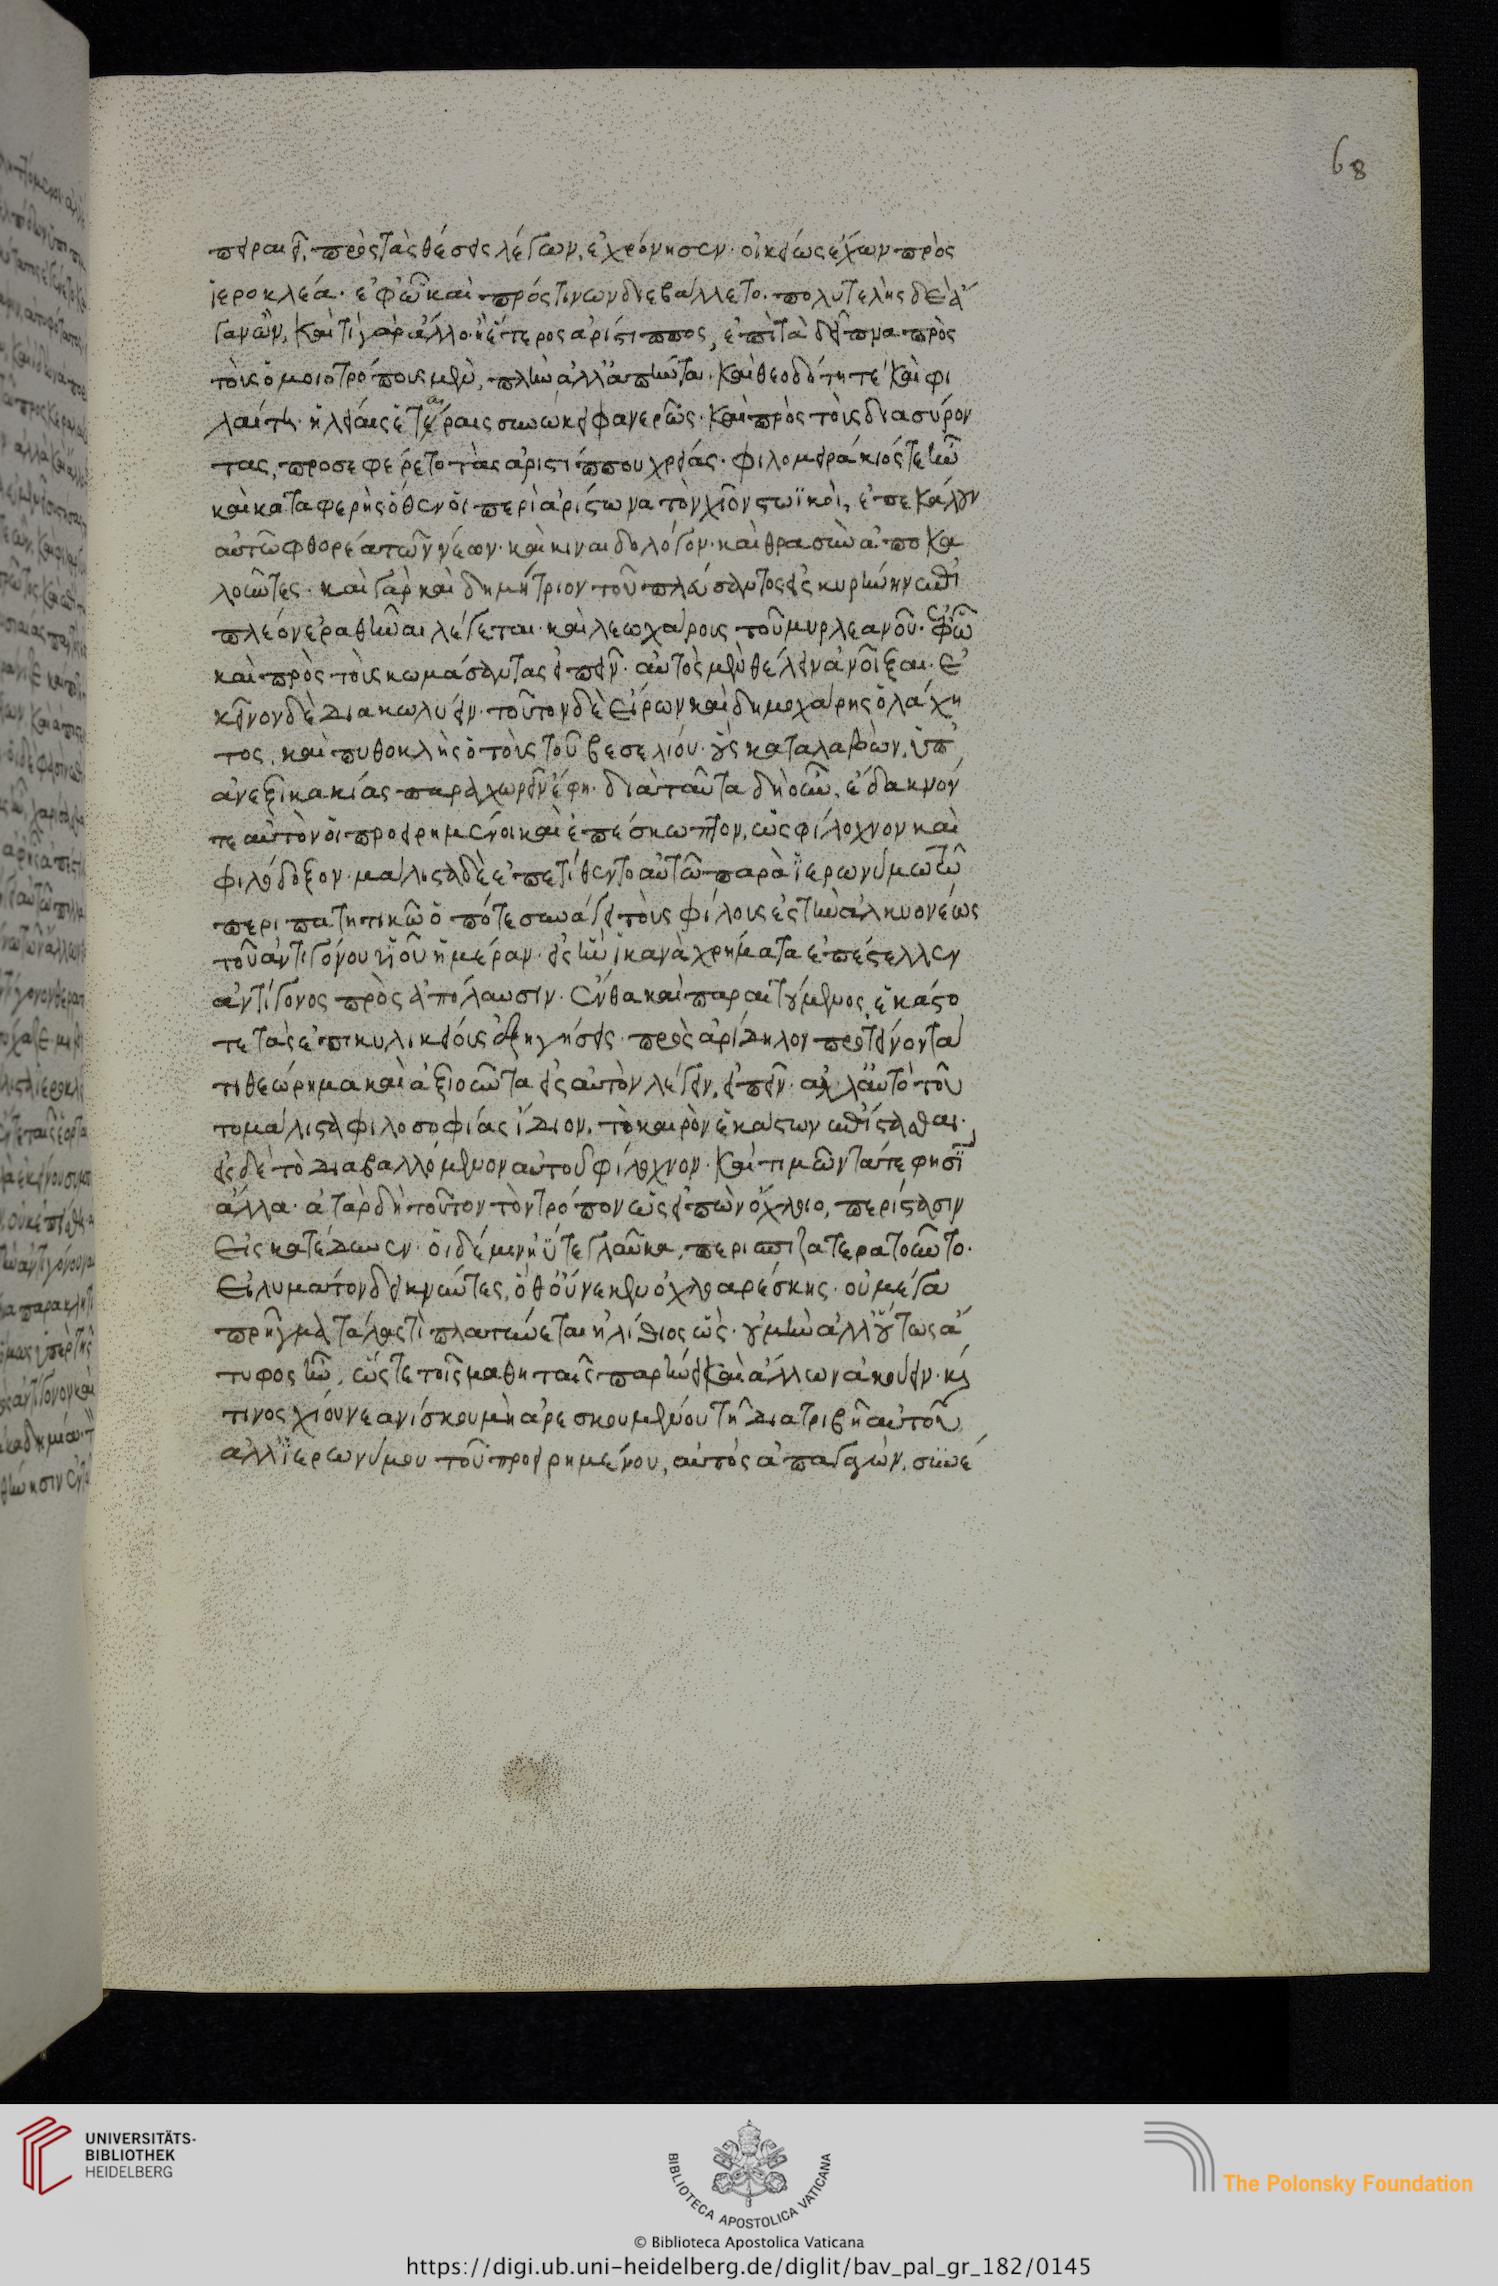 68
πειραιεῖ, πρὸς τὰς θέσεις λέγων, ἐχρόνησεν· οἰκείως ἔχων πρὸς
ἱεροκλέα· ἐφ' ᾧ καὶ πρός τινων διεβάλλετο. πολυτελὴς δὲ ἄ
γαν ὢν, καὶ τί γὰρ ἄλλο ἢ ἕτερος ἀρίστιππος, ἐπὶ τὰ δεῖπνα πρὸς
τοὺς ὁμοιοτρόπους μὲν, πλὴν ἀλλ' ἀπήντα· καὶ θεοδότη τε καὶ φι
λαίτη· ἠλείαις ἑτέραις συνώκει φανερῶς· καὶ πρὸς τοὺς διασύρον
τας, προσεφέρετο τὰς ἀριστίππου χρείας· φιλομειράκιός τε ἦν
καὶ καταφερὴς ὅθεν οἱ περὶ ἀρίστωνα τὸν χῖον στωϊκοὶ, ἐπεκάλουν
αὐτῶ φθορέα τῶν νέων· καὶ κιναιδολόγον· καὶ θρασὺν ἀποκα
λοῦντες· καὶ γὰρ καὶ δημήτριον τοῦ πλεύσαντος εἰς κυρήνην ἐπὶ
πλέον ἐρασθῆναι λέγεται· καὶ λεωχάρους τοῦ μυρλεανοῦ· ἐφ' ᾧ
καὶ πρὸς τοὺς κωμάσαντας εἰπεῖν· αὐτὸς μὲν θέλειν ἀνοῖξαι· ἐ
κεῖνον δὲ διακωλύειν· τοῦτον δὲ εἴρων καὶ δημοχάρης ὁ λάχη
τος, καὶ πυθοκλὴς ὁ τοὺς τοῦ βεσελίου· οὓς καταλαβὼν, ὑπ'
ἀνεξικακίας παραχωρεῖν ἔφη· διὰ ταῦτα δὴ οὖν, ἔδακνόν
τε αὐτὸν οἱ προειρημένοι καὶ ἐπέσκωπτον, ὡς φίλοχλον καὶ
φιλόδοξον· μάλιστα δὲ ἐπετίθεντο αὐτῶ παρὰ ἱερωνύμω τῶ
περιπατητικῶ ὁπότε συνάγει τοὺς φίλους ἐς τὴν ἀλκυονέως
τοῦ ἀντιγόνου υἱοῦ ἡμέραν· εἰς ἣν ἱκανὰ χρήματα ἐπέστελλεν
ἀντίγονος πρὸς ἀπόλαυσιν· ἔνθα καὶ παραιτούμενος ἑκάστο
τε τὰς ἐπικυλικείους ἐξηγήσεις· πρὸς ἀρίδηλον προτείνοντα
τι θεώρημα καὶ ἀξιοῦντα εἰς αὐτὸν λέγειν, εἰπεῖν· ἀλλ' αὐτὸ τοῦ
το μάλιστα φιλοσοφίας ἴδιον, τὸ καιρὸν ἑκάστων ἐπίστασθαι·
εἰς δὲ τὸ διαβαλλόμενον αὐτοῦ φίλοχλον· καὶ τιμων τά τε φησὶ
ἄλλα· ἀτὰρ δὴ τοῦτον τὸν τρόπον ὣς εἰπὼν ὄχλοιο, περίστασιν
εἰς κατέδυνεν· οἱ δέ μιν ἠΰτε γλαῦκα, περισπιζα τερατοῦντο·
εἰλυματον δεικνύντες, ὁθ' οὕνεκεν ὀχλοαρέσκης· οὐ μέγα
πρῆγμα τάλας τὶ πλατύνεται ἠλίθιος ὥς· οὐ μὴν ἀλλ' οὕτως ἄ
τυφος ἦν, ὥστε τοῖς μαθηταῖς παρήνει καὶ ἄλλων ἀκούειν· καὶ
τινος χίου νεανίσκου μὴ ἀρεσκουμένου τῆ διατριβῆ αὐτοῦ
ἀλλ' ἱερωνύμου τοῦ προειρημένου, αὐτὸς ἀπαγαγὼν, συνέ
UNIVERSITÄTS-
BIBLIOTHEK
HEIDELBERG
BIBLIOTECA APOSTOLICA VATICANA
The Polonsky Foundation
© Biblioteca Apostolica Vaticana
https://digi.ub.uni-heidelberg.de/diglit/bav_pal_gr_182/0145